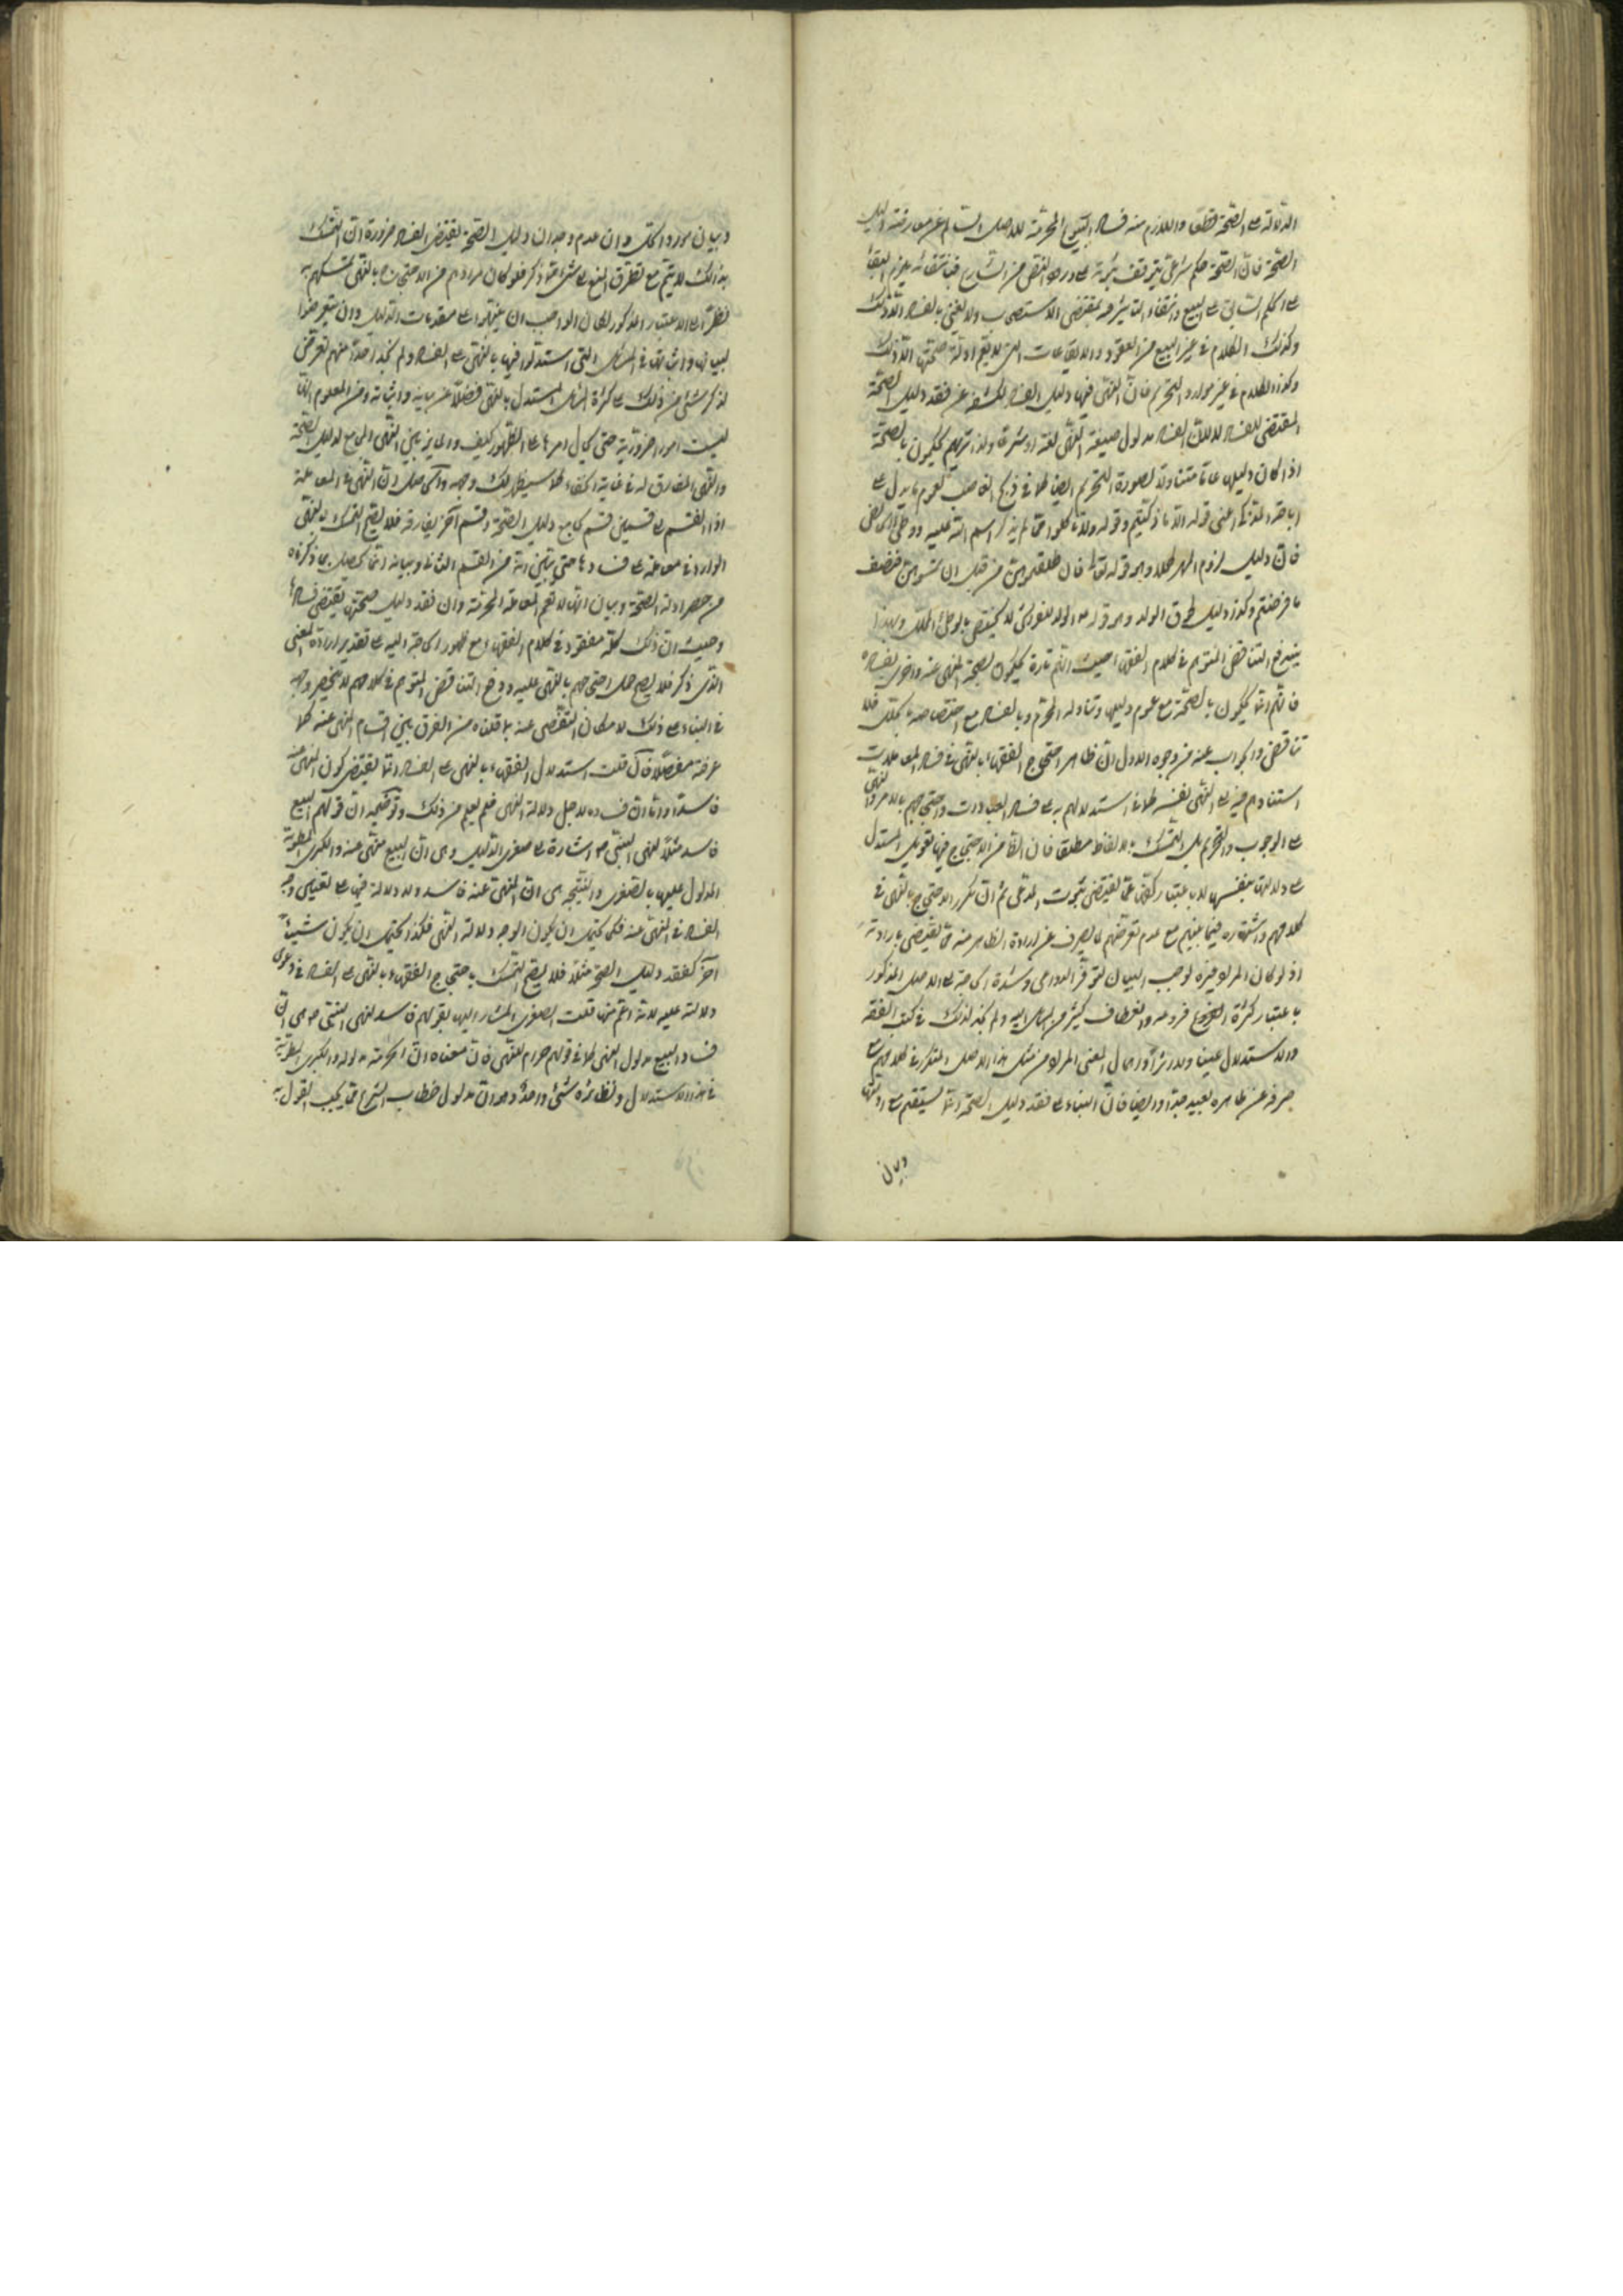 الدلالة على الصحة قطعا واللازم منه فساد البيوع المحرمة للاصل السالم عن معارضة دليل
الصحة فان الصحة حكم شرعي يتوقف ثبوته على ورود النص من الشارع فبانتفائه يلزم البقاء
على الحكم السابق على البيع وانتفاء التأثير فيه بمقتضى الاستصحاب ولا نعني بالفساد الا ذلك
وكذلك الكلام في غير البيع من العقود والايقاعات التي لا يعم ادلة صحتها الا ذلك
وكذا الكلام في غير موارد التحريم فان النهي فيها دليل الفساد لكشفه عن فقد دليل الصحة
المقتضي للفساد لا لان الفساد مدلول صيغة النهي لغة او شرعا ولذا تريهم يحكمون بالصحة
اذا كان دليلها عاما متناولا لصورة التحريم ايضا كما في ذبح الغاصب لعموم ما يدل على
اباحة المذكى اعني قوله الا ما ذكيتم وقوله ولا تأكلوا مما لم يذكر اسم الله عليه ووطي الحائض
فان دليل لزوم المهر كملا وهو قوله تعالى فان طلقتموهن من قبل ان تمسوهن فنصف
ما فرضتم وكذا دليل لحوق الولد وهو قوله الولد للفراش لا يختص بالوطي المحلل وبهذا
يندفع التناقض المتوهم في كلام الفقهاء حيث انهم تارة يحكمون بصحة المنهي عنه واخرى بفساده
فانهم انما يحكمون بالصحة مع عموم دليلها وتناوله المحرم وبالفساد مع اختصاصه بالمحلل فلا
تناقض والجواب عنه من وجوه الاول ان ظاهر احتجاج الفقهاء بالنهي في فساد المعاملات
استنادهم فيه الى النهي نفسه كما في استدلالهم به على فساد العبادات واحتجاجهم بالامر والنهي
على الوجوب والتحريم بل التمسك بالالفاظ مطلقا فان الظاهر من الاحتجاج فيها تعويل المستدل
على دلالتها بنفسها لا باعتبار كشفها عما يقتضي ثبوت المدعى ثم ان تكرر الاحتجاج بالنهي في
كلامهم واشتهاره فيما بينهم مع عدم تعرضهم لما يصرف عن ارادة الظاهر منه مما يقتضي بارادته
اذ لو كان المراد غيره لوجب البيان لتوفر الدواعي وشدة الحاجة الى الاصل المذكور
باعتبار كثرة فروعه وانعطاف كثير من المسائل اليه ولم نجد لذلك في كتب الفقه
والاستدلال عينا ولا اثرا واهمال المعنى المراد من مثل هذا الاصل المتكرر في كلامهم مع
صرفه عن ظاهره بعيد جدا وايضا فان البناء على فقد دليل الصحة انما يستقيم مع ادلتها
وبيان
وبيان موارد الحل وان عدم وجدان دليل الصحة يقتضي الفساد ضرورة ان التمسك
بذلك لا يتم مع تطرق المنع الى شيء مما ذكر فلو كان مرادهم من الاحتجاج بالنهي تمسكهم به
نظرا الى الاعتبار المذكور لكان الواجب ان ينبهوا على مقدمات الدليل وان يتعرضوا
لبيانها واثباتها في المسائل التي استدلوا فيها بالنهي على الفساد ولم نجد احدا منهم تعرض
لذكر شيء من ذلك على كثرة المسائل المستدل بالنهي فضلا عن بيانه واثباته ومن المعلوم انها
ليست امورا ضرورية حتى يحال امرها على الظهور كيف والمايز بين النهي المجامع لدليل الصحة
والنهي المفارق له في غاية الخفاء كما سيظهر لك وجهه والحاصل ان النهي في المعاملة
اذا انقسم على قسمين قسم يجامع دليل الصحة وقسم آخر يفارقه فلا يصح التمسك بالنهي
الوارد في معاملة على فسادها حتى يتبين انه من القسم الثاني وبيانه انما يحصل بما ذكرناه
من حصر ادلة الصحة وبيان انها لا تعم المعاملة المحرمة وان فقد دليل صحتها يقتضي فسادها
وحيث ان ذلك كله مفقود في كلام الفقهاء مع ظهور الحاجة اليه على تقدير ارادة المعنى
الذي ذكر فلا يصح حمل احتجاجهم بالنهي عليه ودفع التناقض المتوهم في كلامهم لا ينحصر وجهه
في البناء على ذلك لامكان التفصي عنه بما قلناه من الفرق بين اقسام المنهي عنه كما
عرفته مفصلا فان قلت استدلال الفقهاء بالنهي على الفساد انما يقتضي كون المنهي عنه
فاسدا واما ان فساده لاجل دلالة النهي فلم يعلم من ذلك وتوضيحه ان قولهم البيع
فاسد مثلا لنهي النبي ص اشارة الى صغرى الدليل وهي ان البيع منهي عنه والكبرى المطوية
المدلول عليها بالصغرى والنتيجة هي ان المنهي عنه فاسد ولا دلالة فيها على تعيين وجه
الفساد في المنهي عنه فكما يحتمل ان يكون الوجه دلالة النهي فكذا يحتمل ان يكون شيئا
آخر كفقد دليل الصحة مثلا فلا يصح التمسك باحتجاج الفقهاء بالنهي على الفساد في دعوى
دلالته عليه لانه اعم منها قلت الصغرى المشار اليها بقولهم فاسد لنهي النبي ص هي ان
فساد البيع مدلول النهي كما في قولهم حرام للنهي فان معناه ان الحرمة مدلوله والكبرى المطوية
في هذا الاستدلال ونظائره شيء واحد وهو ان مدلول خطاب الشرع مما يجب القول به